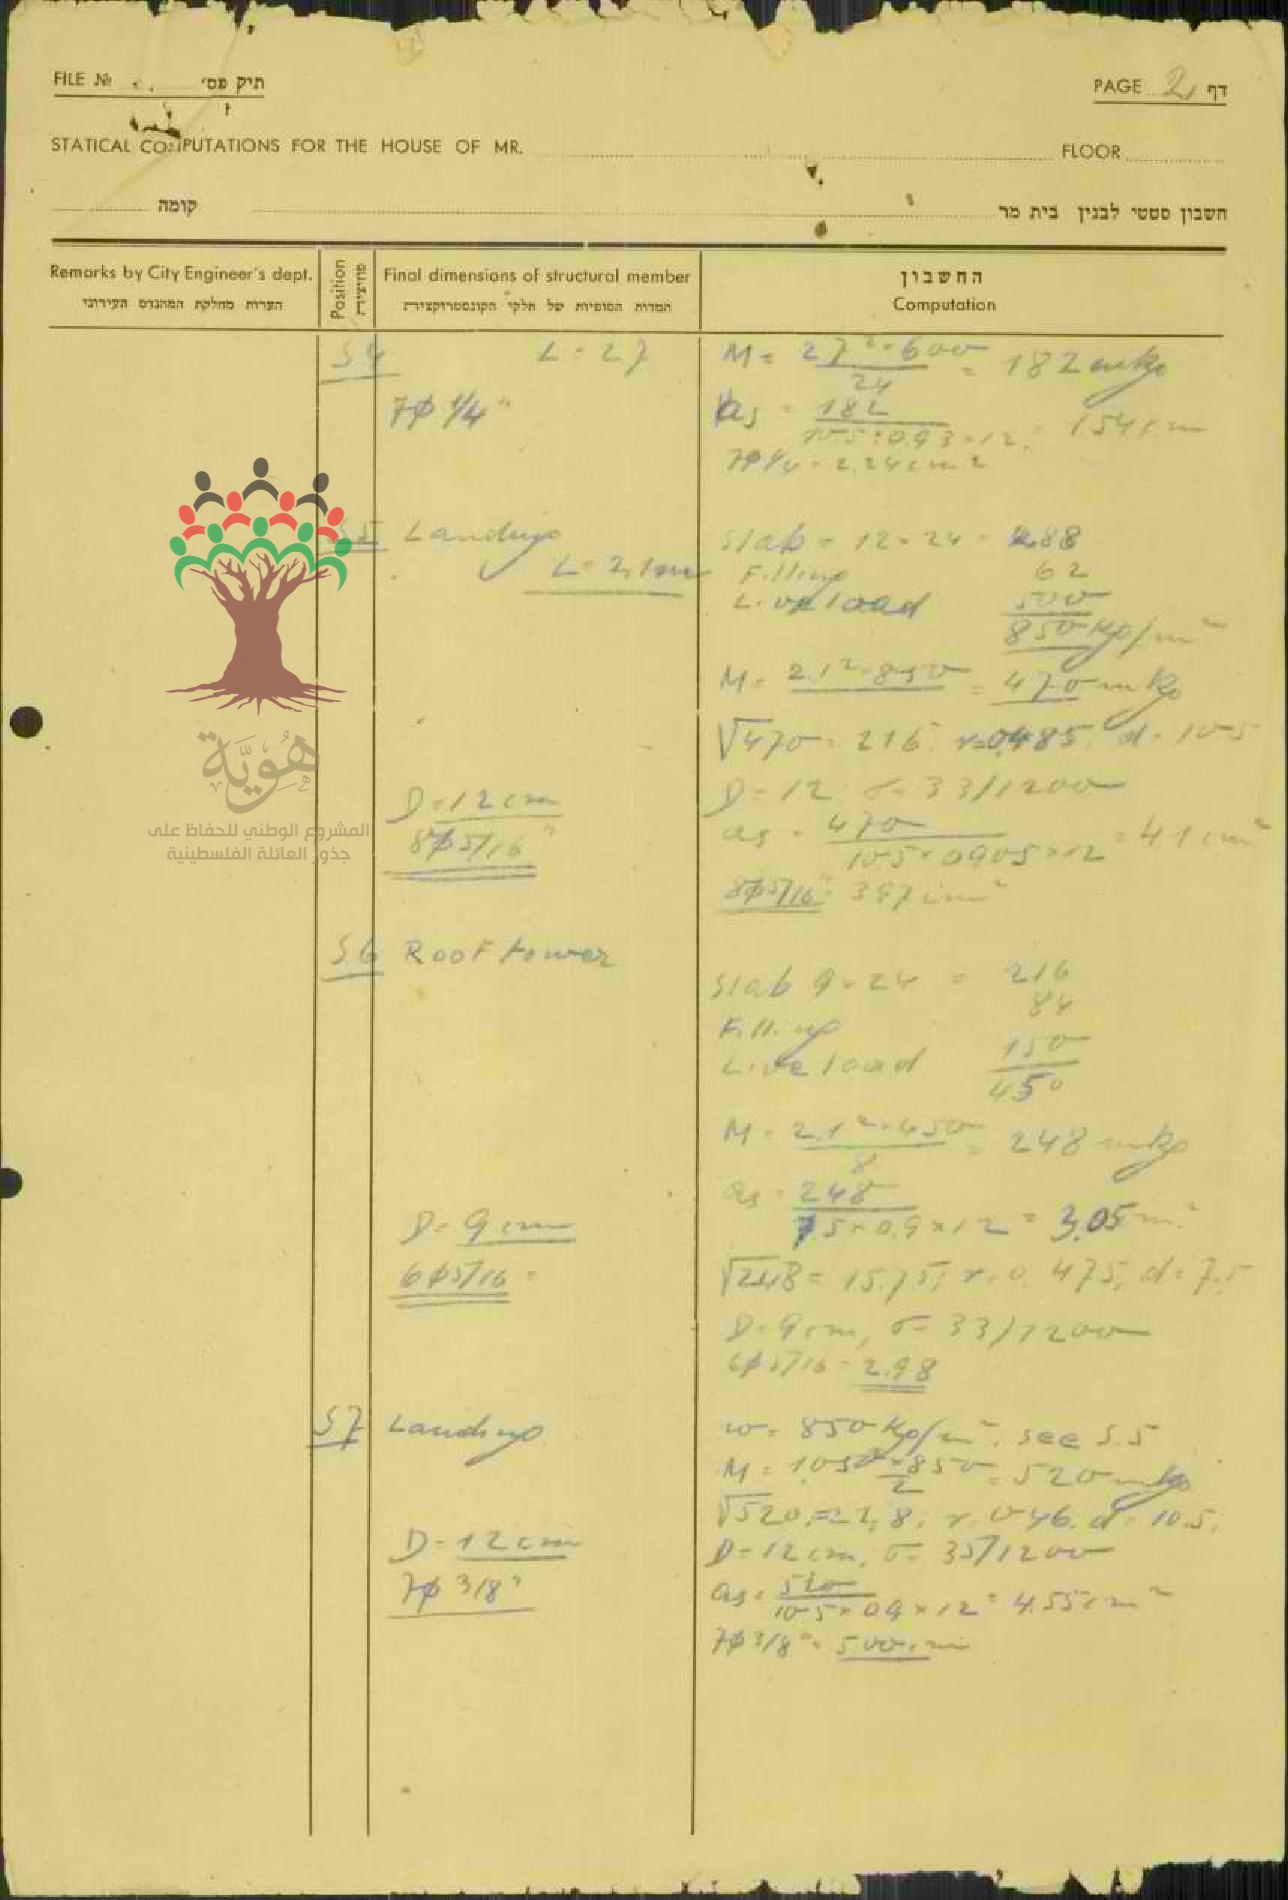 FILE № תיק מס׳
PAGE 2, דף
STATICAL COMPUTATIONS FOR THE HOUSE OF MR. FLOOR
חשבון סטטי לבנין בית מר קומה
Remarks by City Engineer's dept.
הערות מחלקת המהנדס העירוני
Position
פוזיציה
Final dimensions of structural member
המדות הסופיות של חלקי הקונסטרוקציה
החשבון
Computation
S 4 L = 2.7 M = 2.7² × 600 / 24 = 182 mkg
7φ 1/4" as = 182 / 10.5 × 0.93 × 12 = 1.54 cm
7φ 1/4 = 2.24 cm2
S5 Landing Slab = 12 × 24 = 288
L = 2,1m Filling 62
Live load 500
850 kg/m²
M = 2.1² × 850 = 470 mkg
√470 = 21.6; r=0.485, d = 10.5
D = 12 cm D = 12 σ = 33/1200
8φ5/16" as = 470 / 10.5 × 0.905 × 12 = 4.1 cm²
8φ5/16" = 3.97 cm²
S.6 Roof tower
Slab 9 × 24 = 216
Filling 84
Live load 150
450
M = 2.1² × 450 / 8 = 248 mkg
as = 248 / 7.5 × 0.9 × 12 = 3.05 cm²
D = 9 cm
6φ5/16" √248 = 15.75; r = 0.475; d = 7.5
D = 9 cm, σ = 33/1200
6φ5/16 = 2.98
S7 Landing w = 850 kg/m². see S.5
M = 1.05² × 850 / 2 = 520 mkg
√520 = 22,8; r = 0.46. d = 10.5.
D = 12 cm D = 12 cm, σ = 35/1200
7φ 3/8" as = 520 / 10.5 × 0.9 × 12 = 4.55 cm²
7φ3/8" = 5.00 cm
هُويّة
المشروع الوطني للحفاظ على
جذور العائلة الفلسطينية